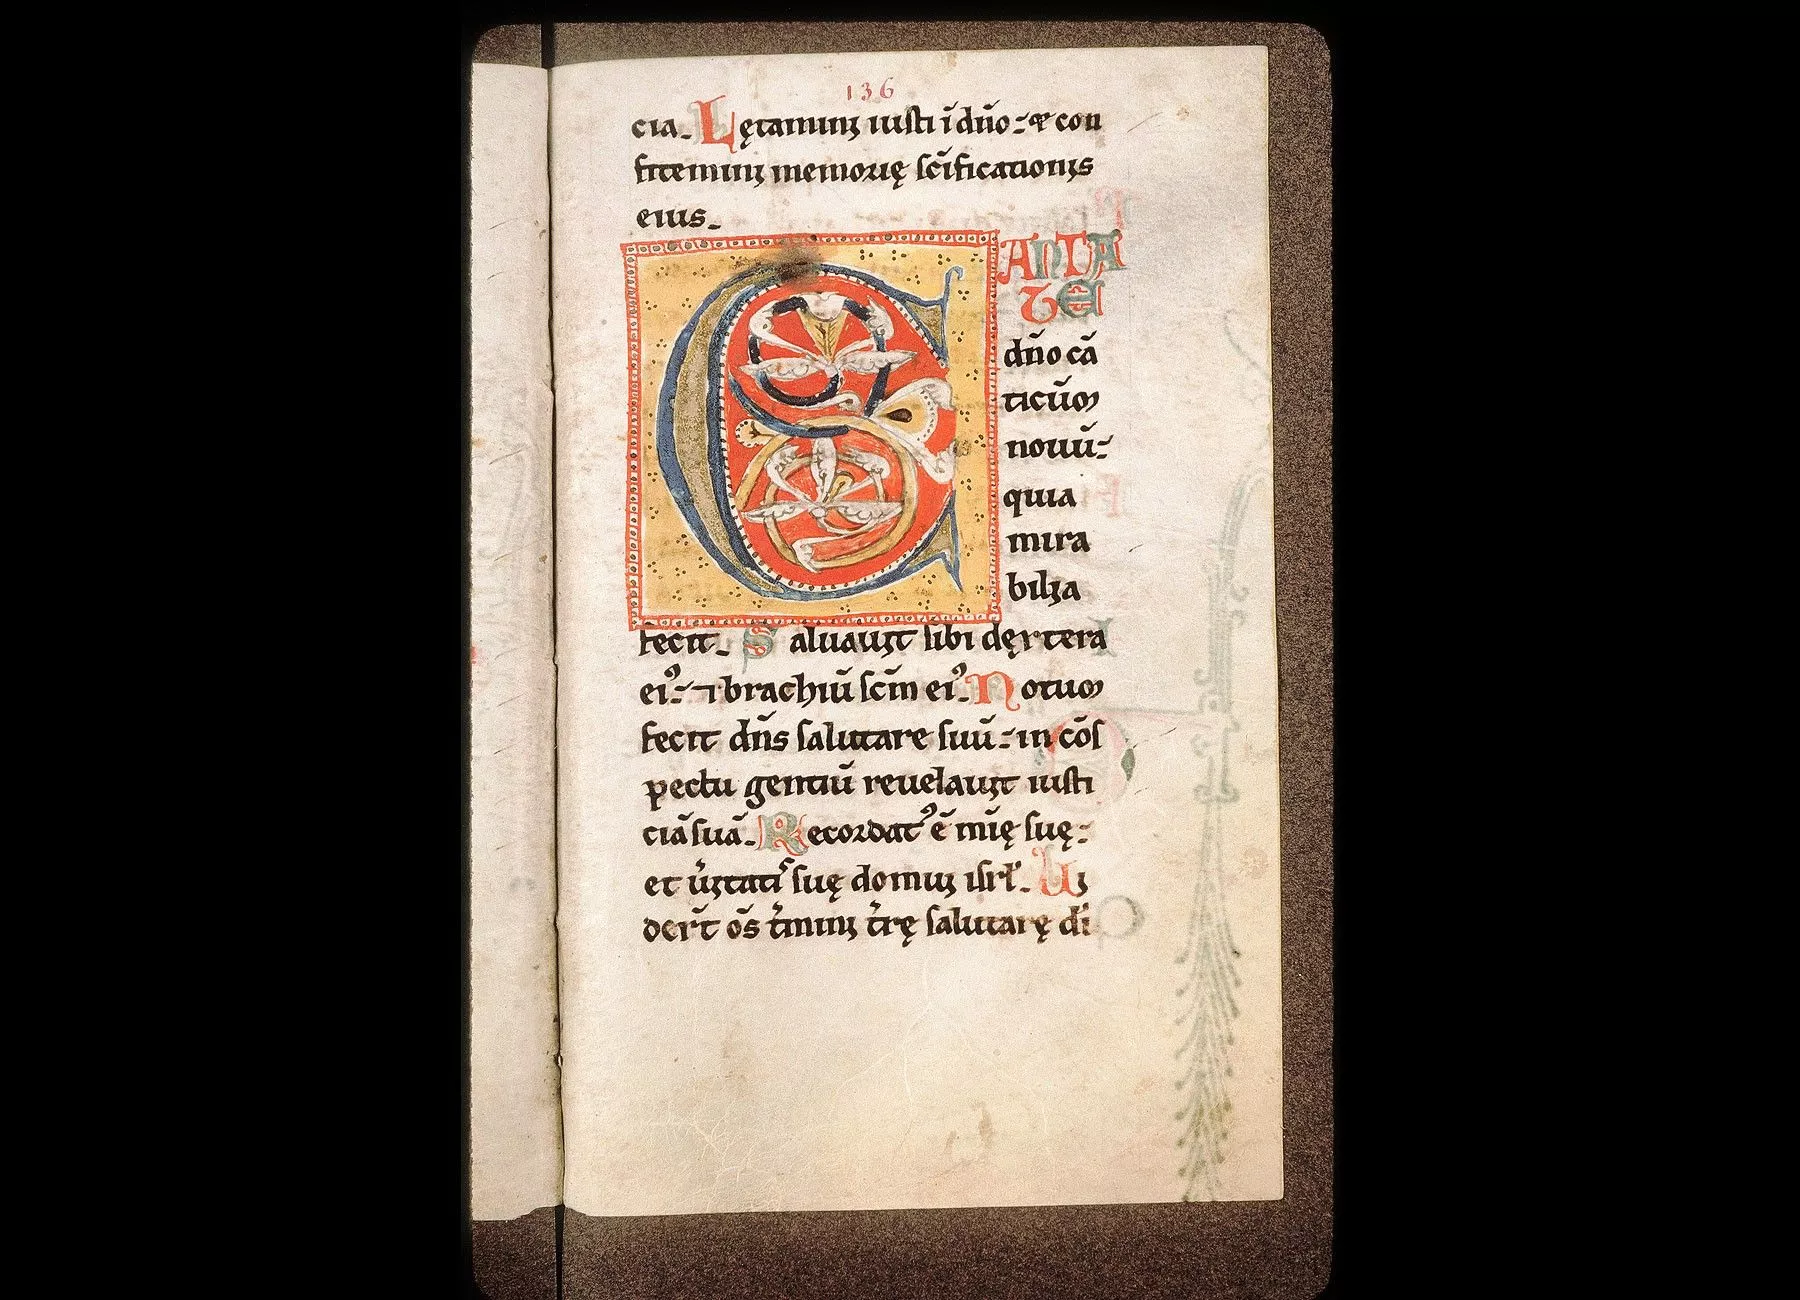 136
cia. Lętaminị iusti ī dño: & con
fitemini memorię sc̄ificationis
eius.
CANTA
TE
dño cā
ticūm
nouū:
quia
mira
bilia
fecit. Saluauit sibi dęxtera
ei᷒: ⁊ brachiū scm̄ ei᷒. Notum
fecit dñs salutare suū: in cōs
pectu gentiū reuelauit iusti
ciā suā. Recordat᷒ ē mīę suę:
et ūitati suę domui isrł. Ui
derт̄ oīs t̄mini t̄rę salutarę dī